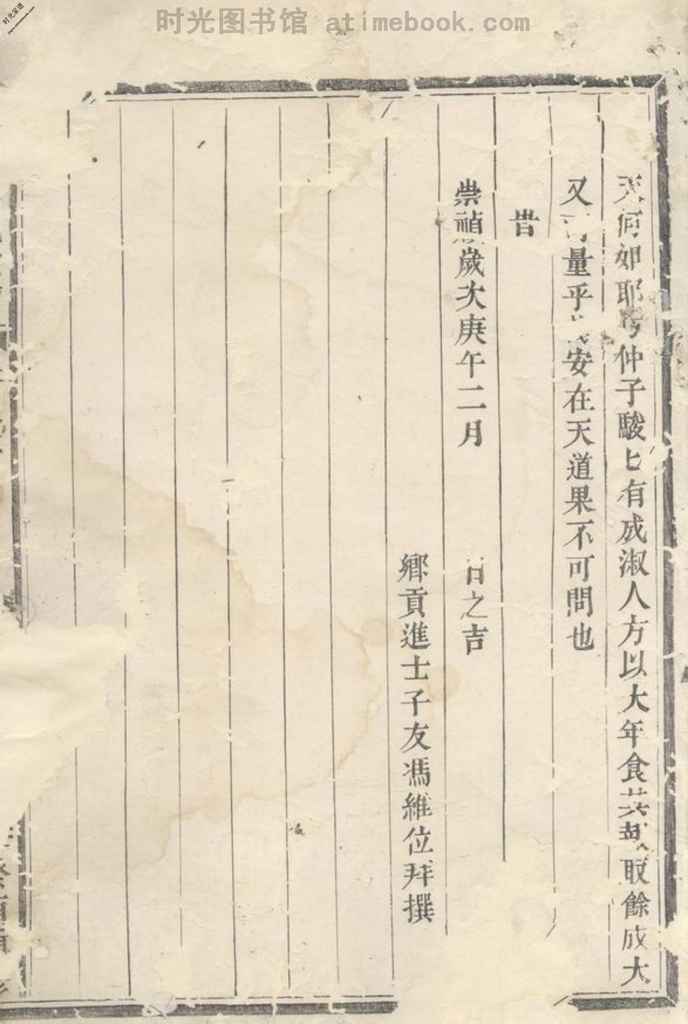 时光图书馆 atimebook.com
天何如耶仲子駿已有成淑人方以大年食其取餘成大
又量乎安在天道果不可問也
昔
崇禎歲次庚午二月之吉
鄉貢進士子友馮維位拜撰